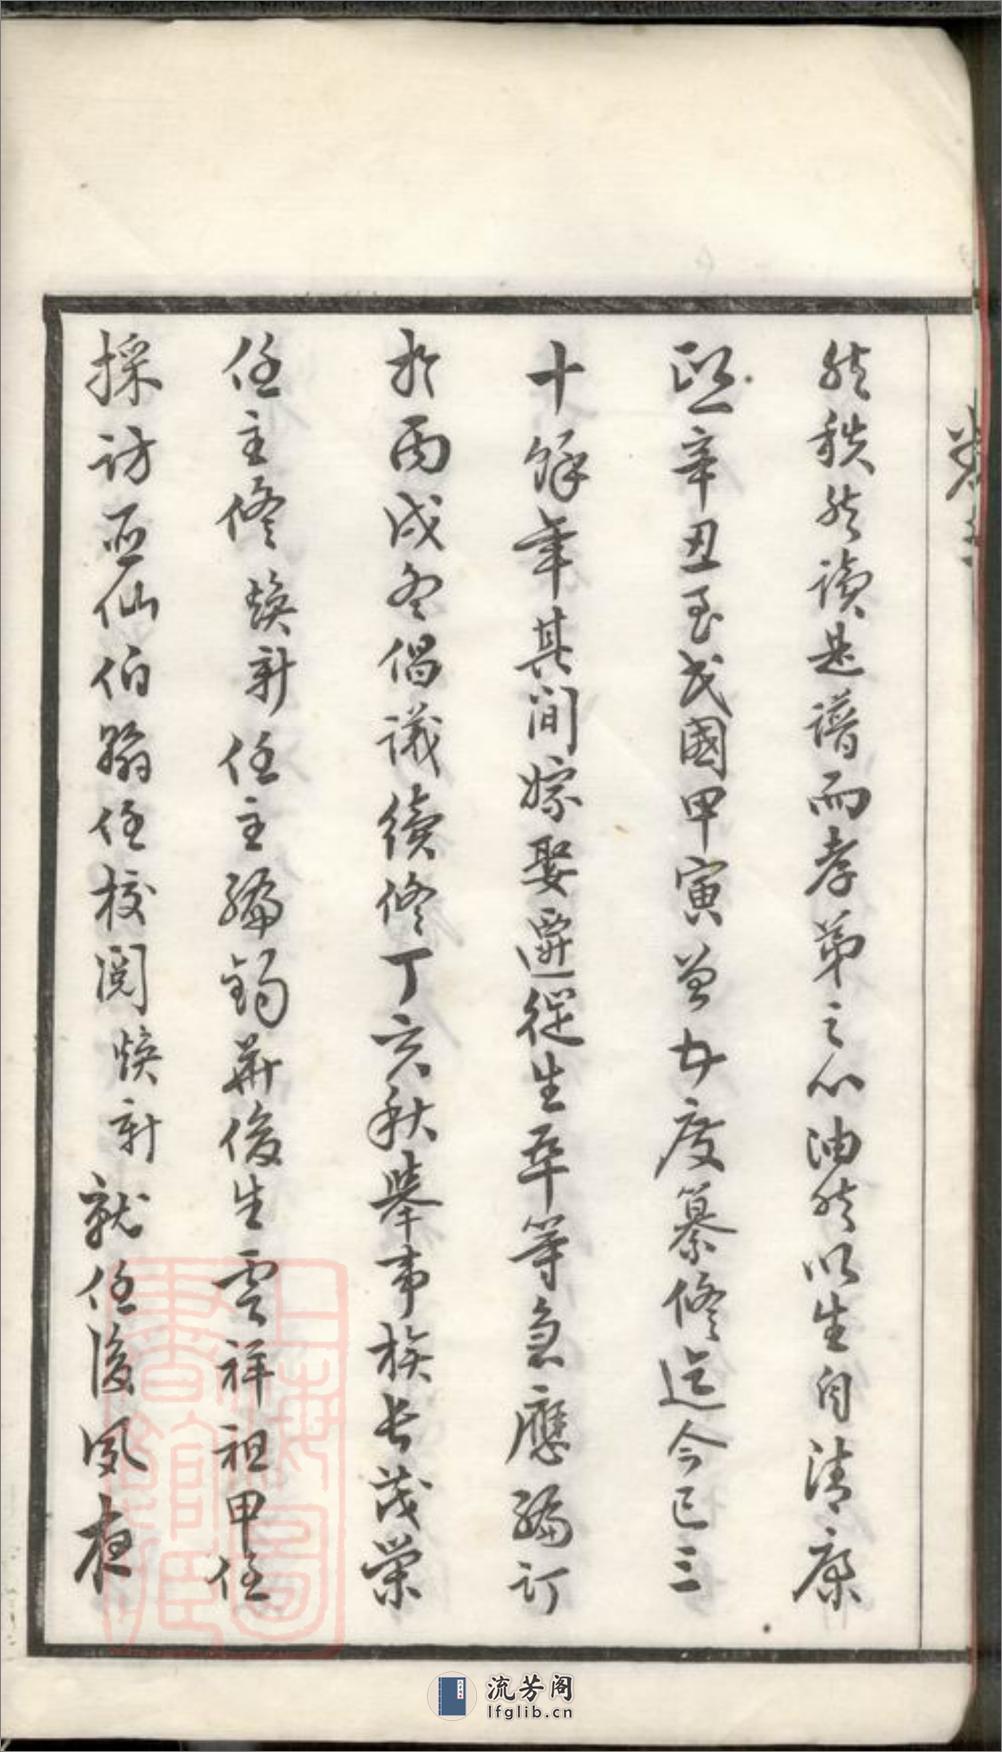 然秩然讀是譜而孝弟之心油然以生自清康
熙辛丑至民國甲寅曾七度纂修迄今已三
十餘年其间嫁娶遷徙生卒等急應編訂
於丙戌冬倡議續修丁亥秋舉事族長茂榮
任主修煥新任主編錫華俊生雲祥祖甲任
採訪亞仙伯翰任校閱煥新就任後夙夜
卷
上海圖書館藏
流芳阁
lfglib.cn